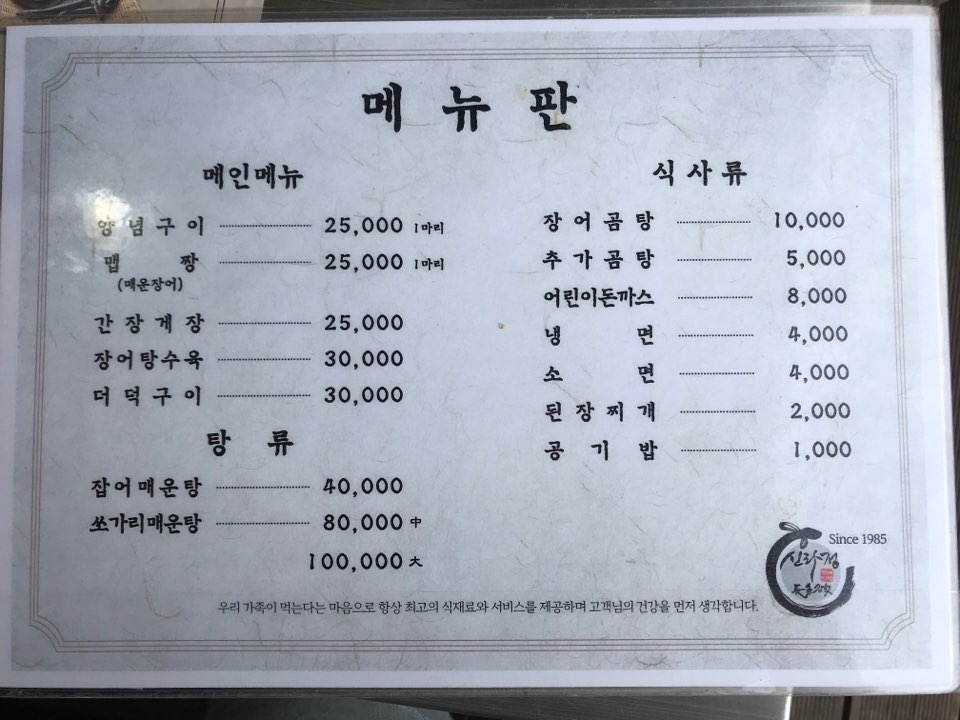 메뉴판
메인메뉴
양념구이 25,000 1마리
맵짱 25,000 1마리
(매운장어)
간장게장 25,000
장어탕수육 30,000
더덕구이 30,000
탕류
잡어매운탕 40,000
쏘가리매운탕 80,000 中
100,000 大
식사류
장어곰탕 10,000
추가곰탕 5,000
어린이돈까스 8,000
냉면 4,000
소면 4,000
된장찌개 2,000
공기밥 1,000
Since 1985
신라정
우리 가족이 먹는다는 마음으로 항상 최고의 식재료와 서비스를 제공하며 고객님의 건강을 먼저 생각합니다.